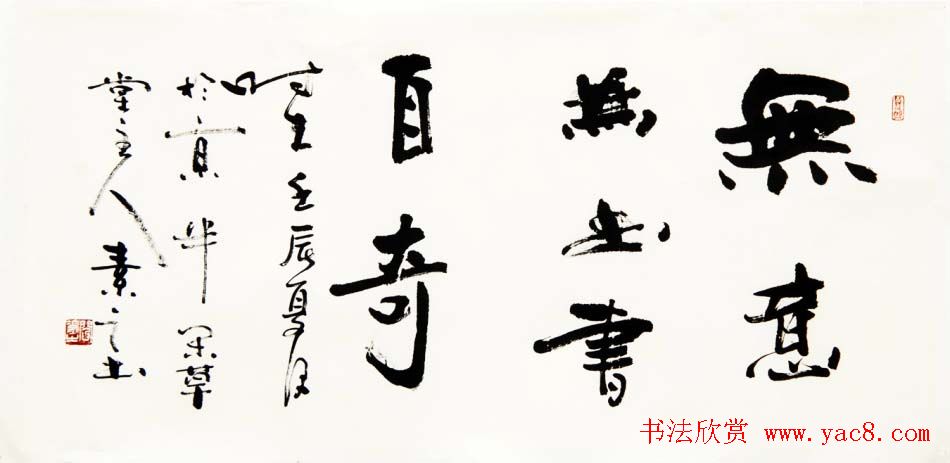 無意
無書書
自奇
時在壬辰夏
於京華 草
堂主人素之书
书法欣赏 www.yac8.com